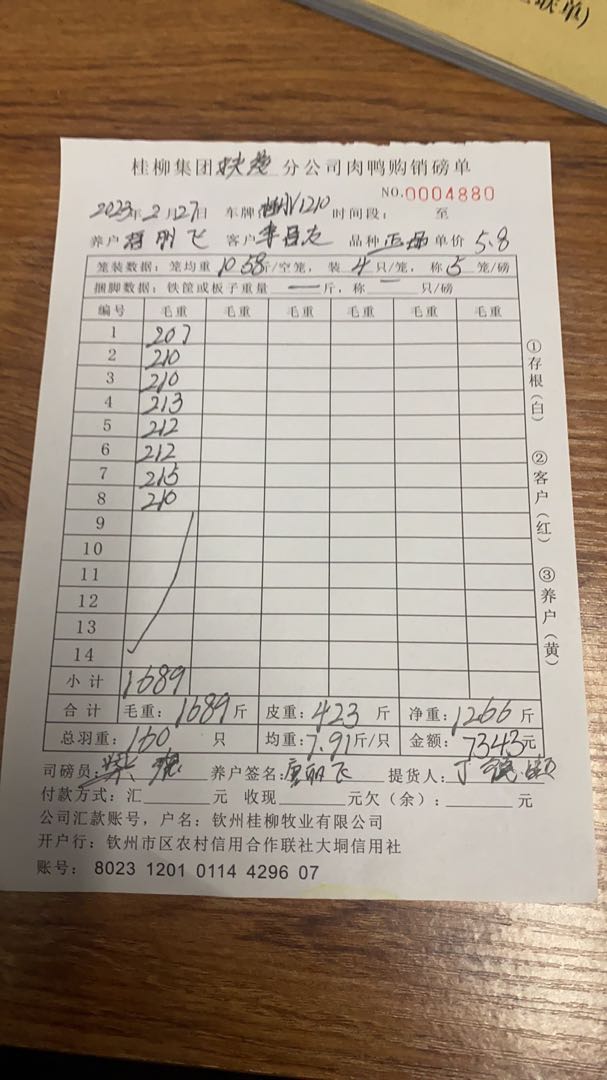 联单)
桂柳集团 分公司肉鸭购销磅单
NO.0004880
2023年2月27日 车牌 V1210 时间段: 至
养户 飞 客户 李昌友 品种 正番 单价 5.8
笼装数据:笼均重10.58斤/空笼,装4只/笼,称5笼/磅
捆脚数据:铁筐或板子重量 — 斤,称 — 只/磅
编号 毛重 毛重 毛重 毛重 毛重 毛重
1 207
2 210
3 210
4 213
5 212
6 212
7 215
8 210
9
10
11
12
13
14
小计 1689
合计 毛重:1689斤 皮重:423斤 净重:1266斤
总羽重:160只 均重:7.91斤/只 金额:7343元
司磅员: 养户签名: 飞 提货人:
付款方式:汇 元 收现 元欠(余): 元
公司汇款账号,户名:钦州桂柳牧业有限公司
开户行:钦州市区农村信用合作联社大垌信用社
账号:8023 1201 0114 4296 07
①存根(白)
②客户(红)
③养户(黄)